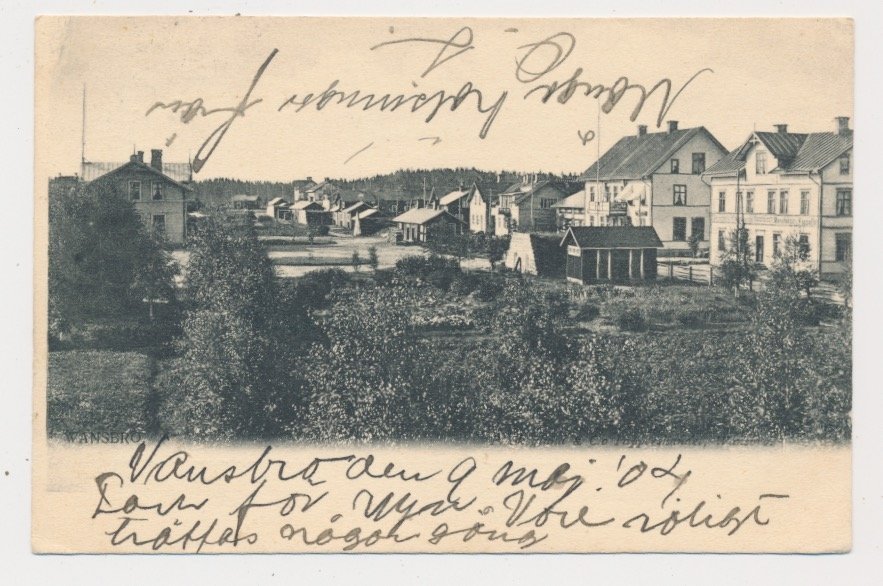 Många hälsningar från
WANSBRO
Vansbro den 9 maj '04
Tack för Vyn. Vore roligt
träffas någon gång